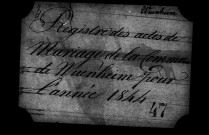 Wuenheim
Registre des actes de
Mariage de la Commune
de Wuenheim pour
l'année 1844
47